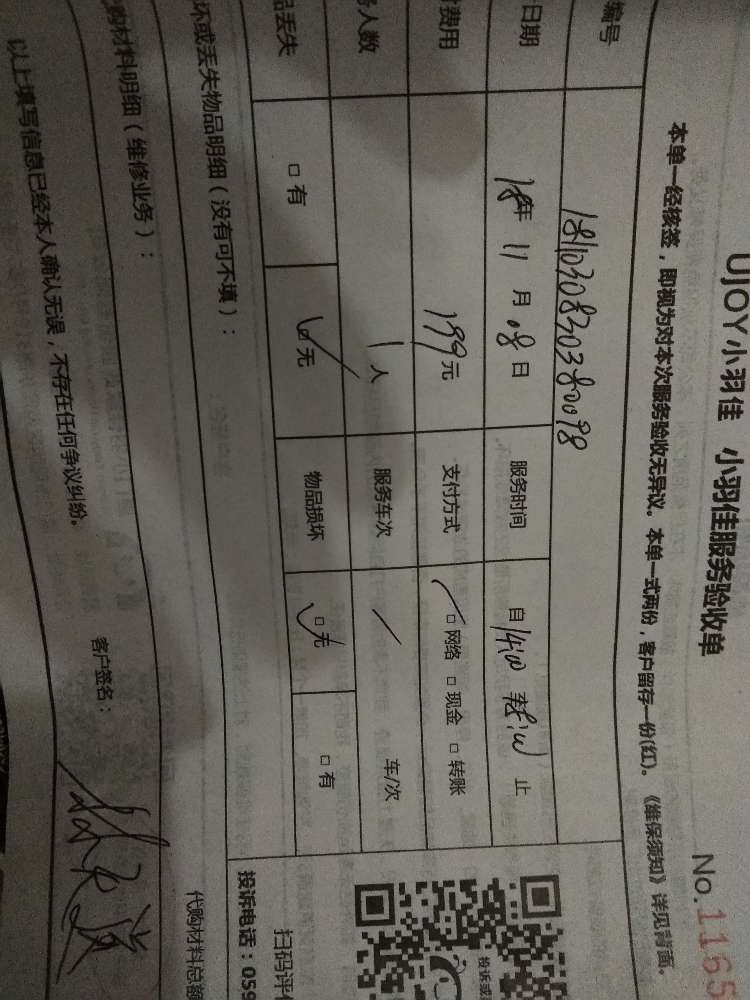 UJOY小羽佳 小羽佳服务验收单
No.1165
本单一经核签，即视为对本次服务验收无异议。本单一式两份，客户留存一份(红)。《维保须知》详见背面。
编号 1811030830380098
日期 18年 11月 08日 服务时间 自 14:10 至 止
费用 199元 支付方式 □网络 □现金 □转账
人数 1人 服务车次 / 车/次
品丢失 □有 □无 物品损坏 □无 □有
坏或丢失物品明细（没有可不填）：
扫码评价
投诉电话：059
购材料明细（维修业务）：
代购材料总额
以上填写信息已经本人确认无误，不存在任何争议纠纷。
客户签名：